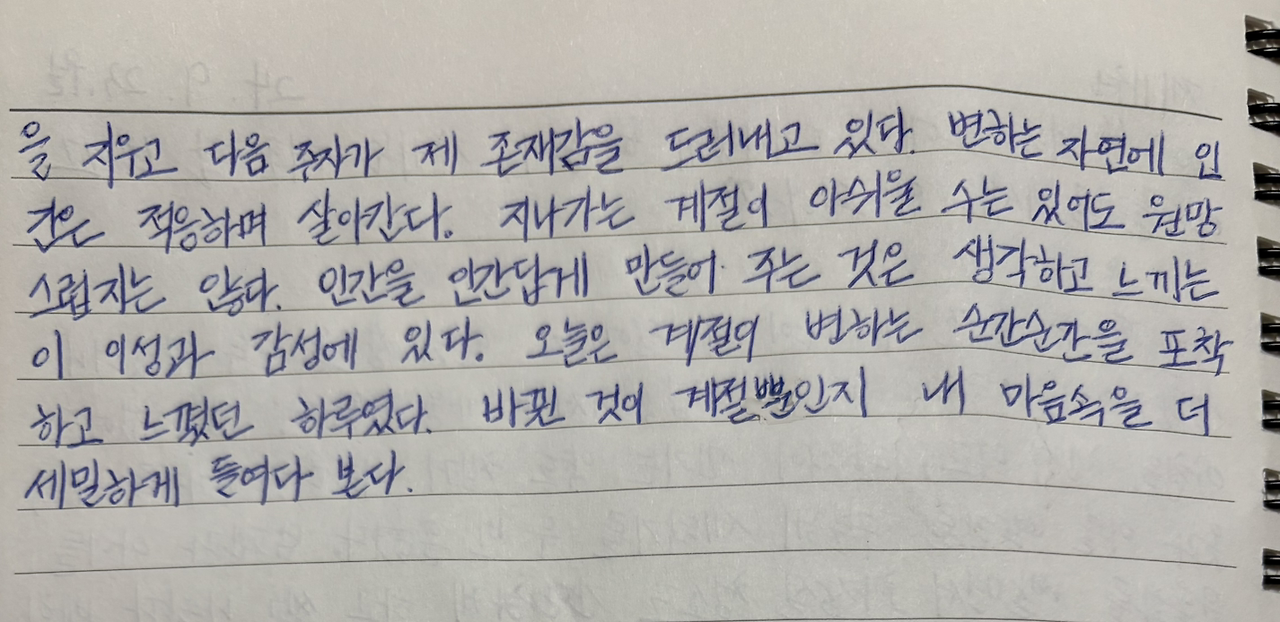 을 지우고 다음 주자가 제 존재감을 드러내고 있다. 변하는 자연에 인
간은 적응하며 살아간다. 지나가는 계절이 아쉬울 수는 있어도 원망
스럽지는 않다. 인간을 인간답게 만들어 주는 것은 생각하고 느끼는
이 이성과 감성에 있다. 오늘은 계절의 변하는 순간순간을 포착
하고 느꼈던 하루였다. 바뀐 것이 계절뿐인지 내 마음속을 더
세밀하게 들여다 본다.